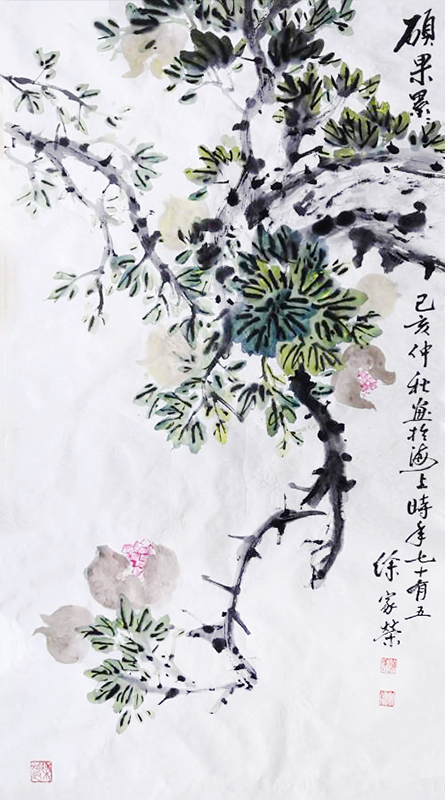 碩果累々
己亥仲秋画於海上時年七十有五
徐家榮